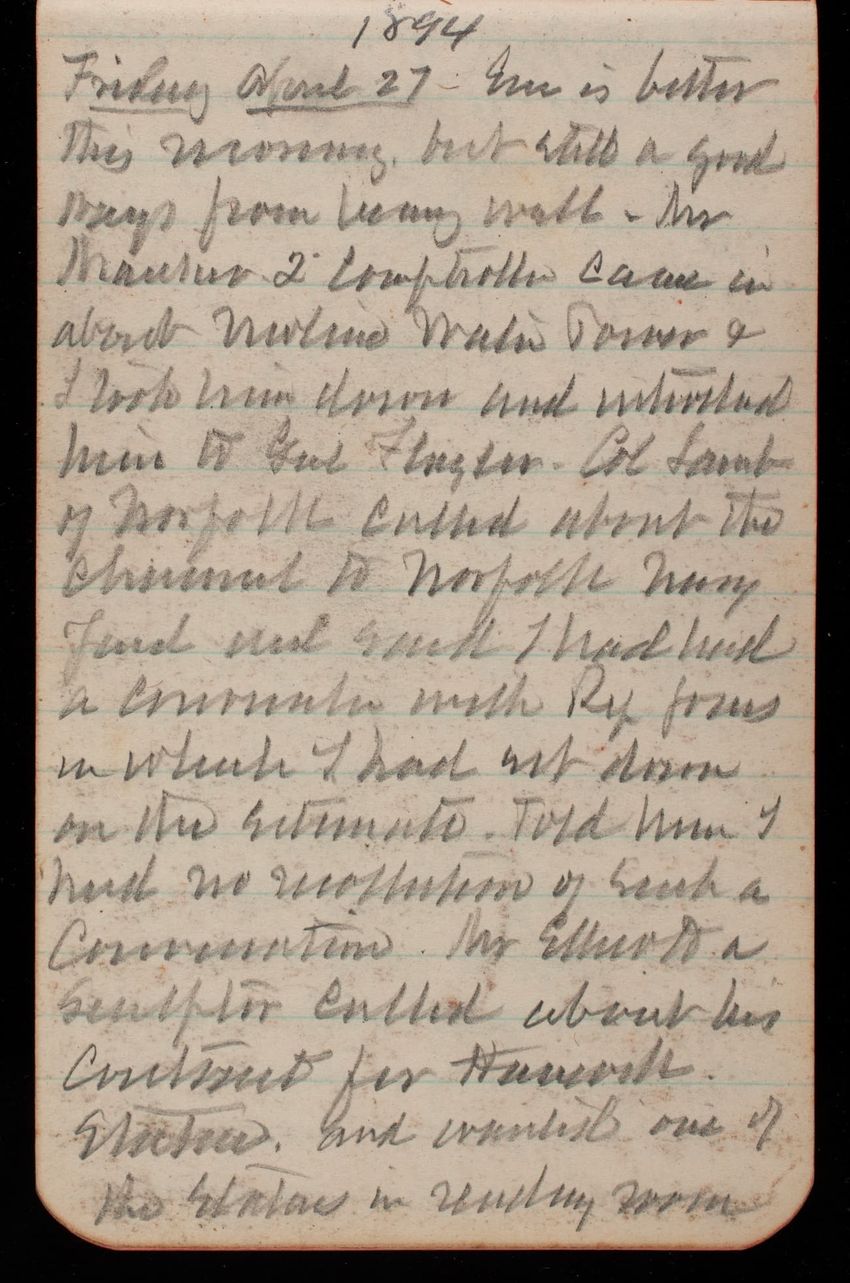 1894
Friday April 27 - Em is better
this morning. but still a good
ways from being well - Mr
Mansur 2 Comptroller came in
about Moline Water Power &
I took him down and introduced
him to Genl Flagler. Col Lamb
of Norfolk called about the
channel to Norfolk Navy
Yard and said I had had
a conversation with Rep
in which I had set down
on the estimate. Told him I
had no recollection of such a
Conversation. Mr Ellicott a
sculptor called about his
Contract for Hancock.
Statue. and wanted one of
the Statues in reading room